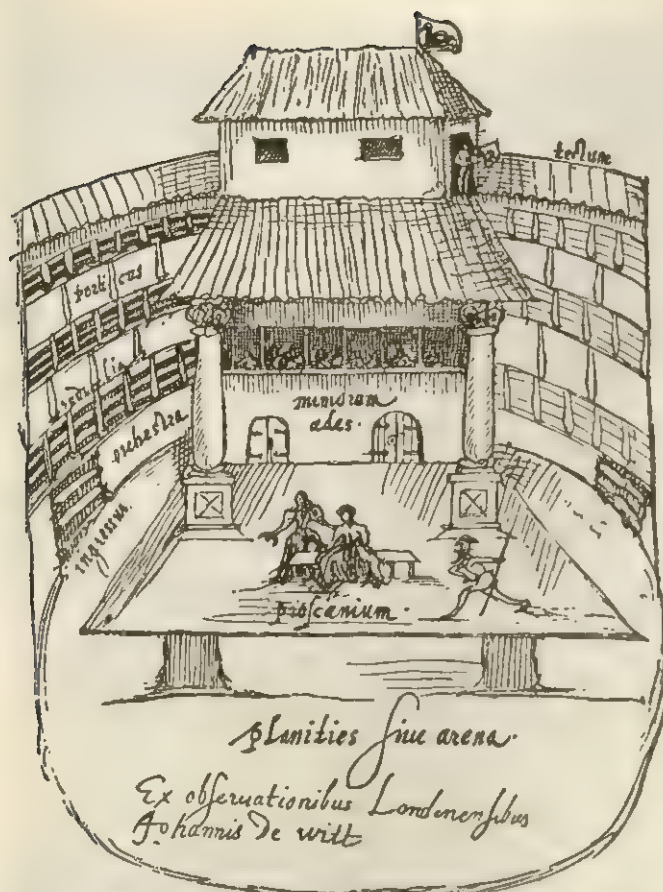 tectum
porticus
sedilia
orchestra
mimorum
ædes.
ingressus.
proscænium.
planities siue arena.
Ex obseruationibus Londinensibus
Johannis De witt